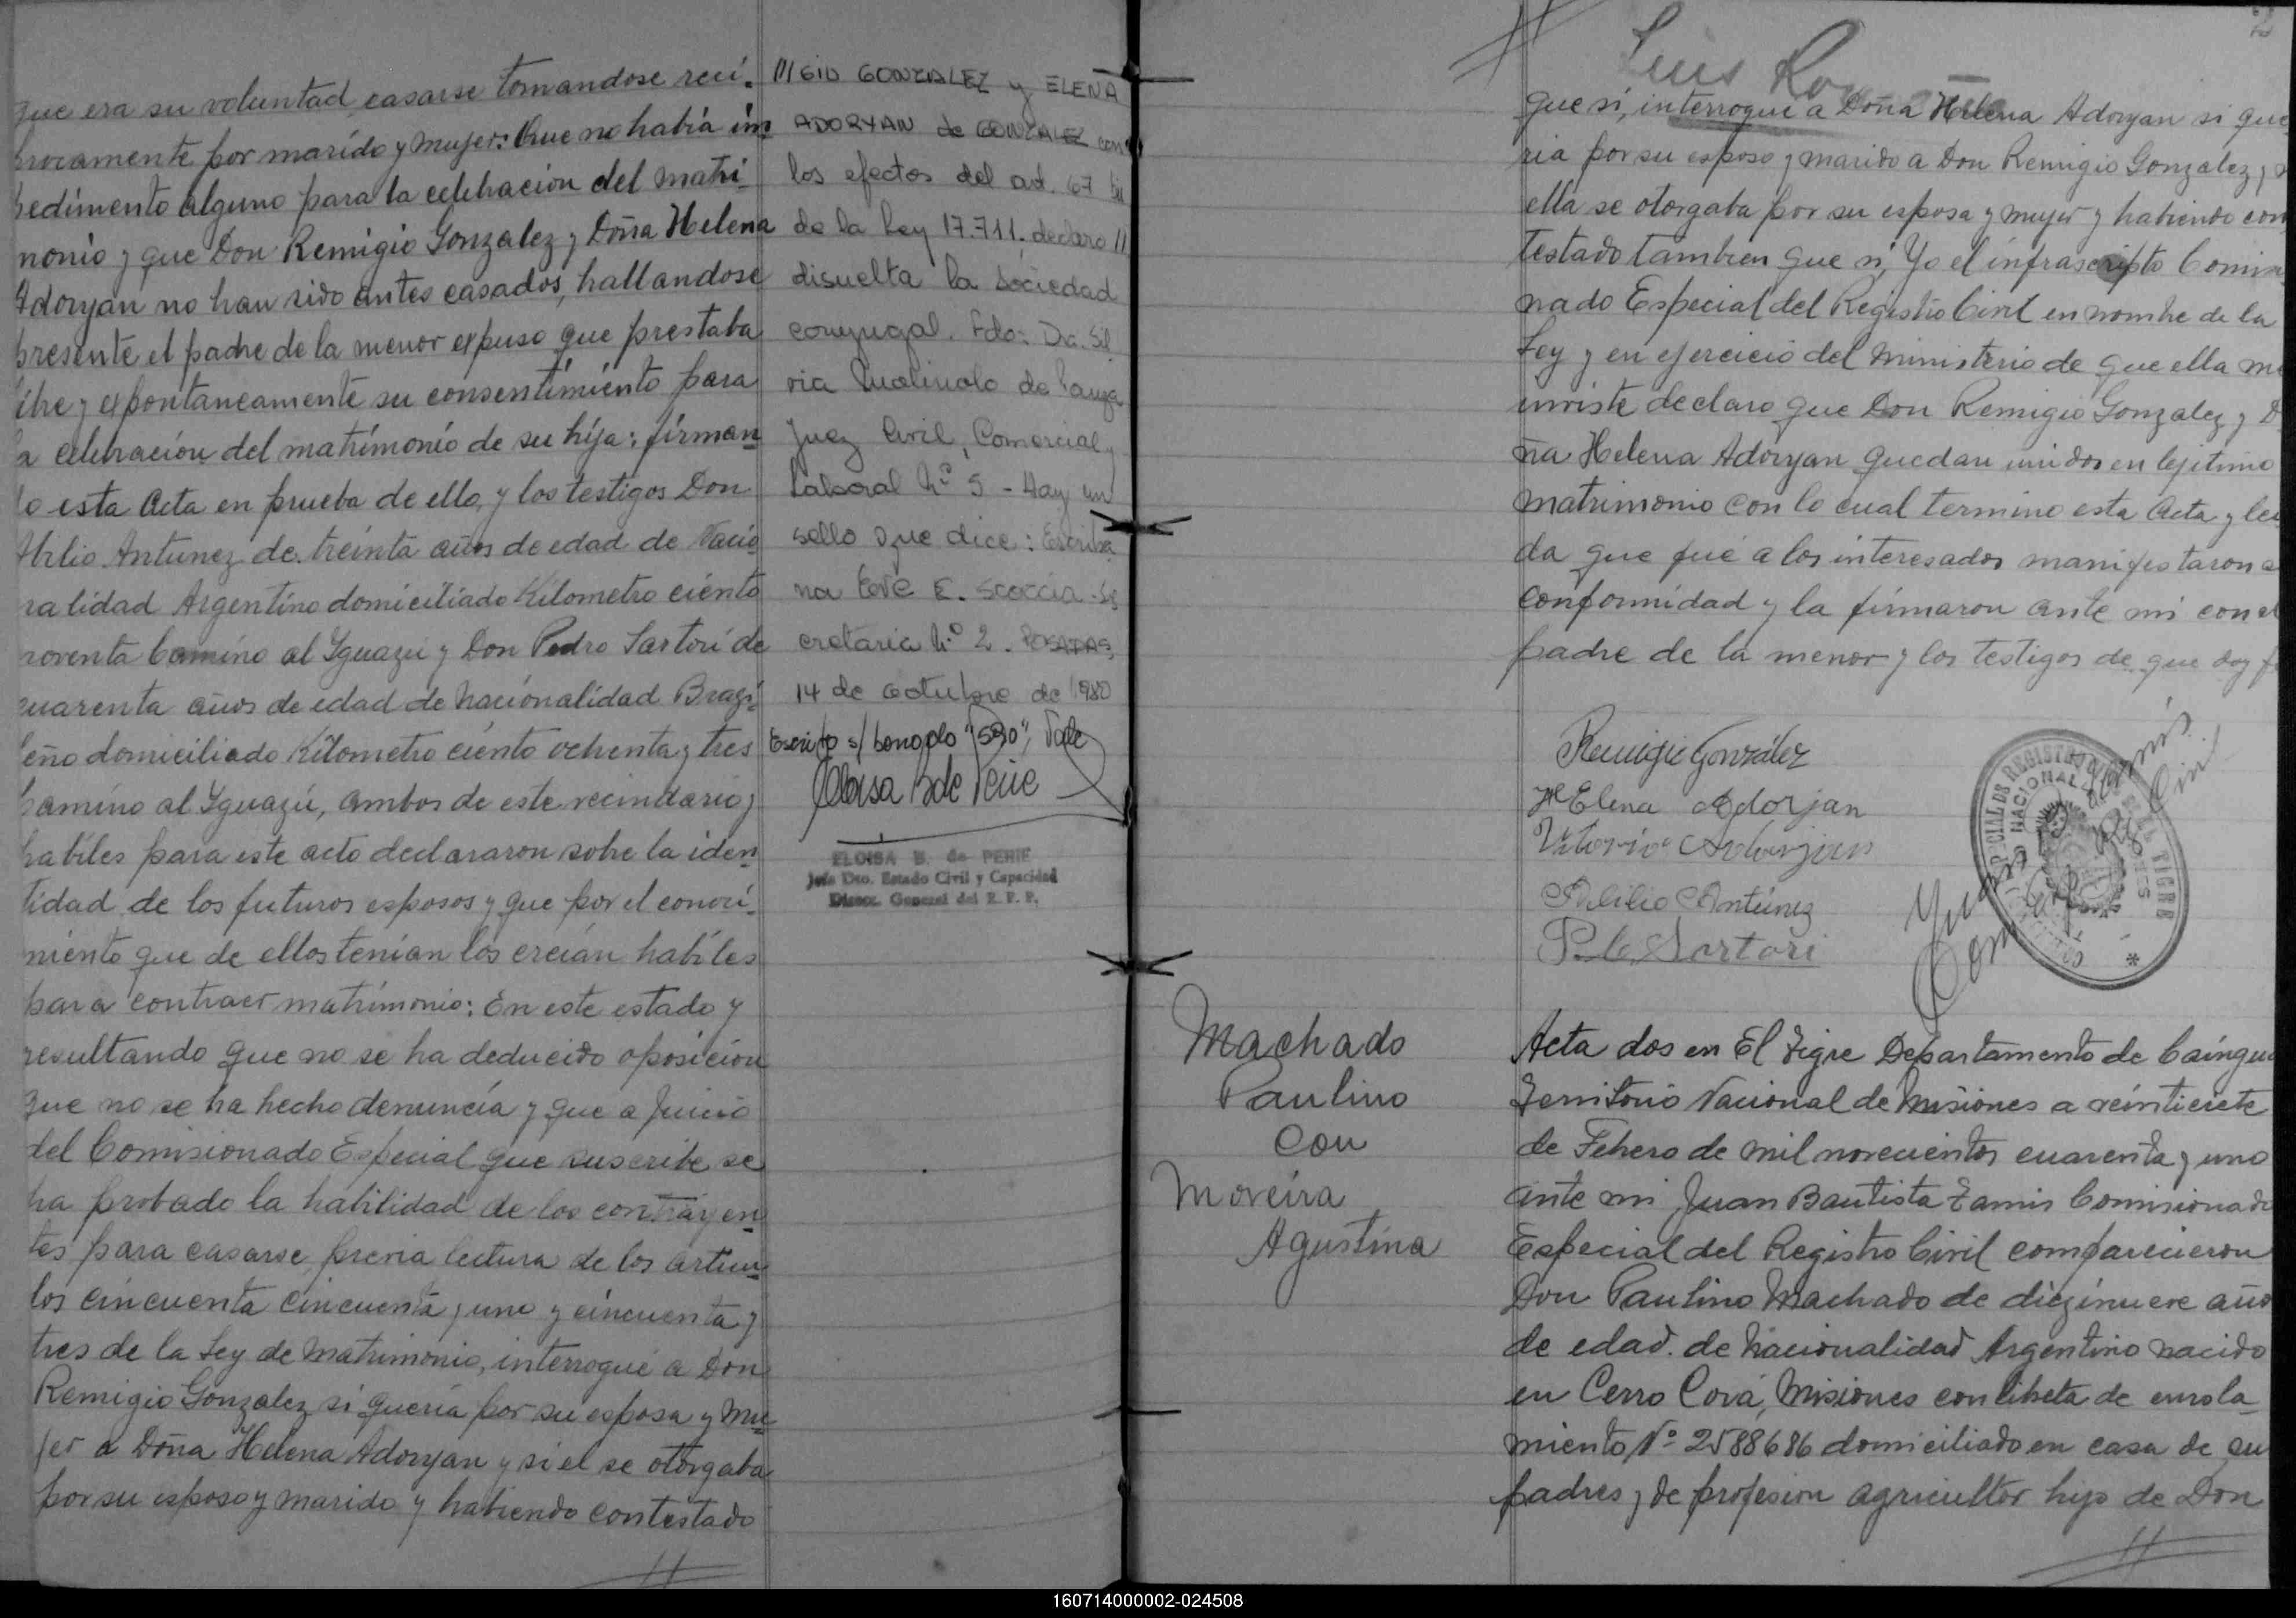 que era su voluntad casarse tomandose recí-
procamente por marído y mujer: Que no había im
pedimento alguno para la celebracion del matri-
monio y que Don Remigio Gonzalez y Doña Helena
Adoryan no han sido antes casados, hallandose
presente el padre de la menor expuso que prestaba
libre y expontaneamente su consentimiento para
la celebración del matrimonio de su híja: firman
do esta Acta en prueba de ello, y los testigos Don
Abilio Antunez de treinta años de edad de Nacio
nalidad Argentino domiciliado Kilometro ciento
noventa Camino al Yguazú y Don Pedro Sartori de
cuarenta años de edad de Nacionalidad Brazi-
leño domiciliado Kilometro ciento ochenta y tres
Camino al Yguazú, ambos de este vecindario y
habiles para este acto declararon sobre la iden
tidad de los futuros esposos y que por el conoci-
miento que de ellos tenian los creían habíles
para contraer matrimonio: En este estado y
resultando que no se ha deducido oposicion
que no se ha hecho denuncía y que a Juicio
del Comisionado Especial que suscribe se
ha probado la habilidad de los contrayen
tes para casarse, previa lectura de los artícu
los cincuenta cincuenta y uno y cincuenta y
tres de la Ley de Matrimonio, interrogué a Don
Remigio Gonzalez si quería por su esposa y mu
jer a Doña Helena Adoryan y si el se otorgaba
por su esposo y marido y habiendo contestado
//GIO GONZALEZ y ELENA
ADORYAN de GONZALEZ con
los efectos del art. 67 bis
de la Ley 17.711. declaro //
disuelta la Sociedad
conyugal. Fdo: Dra. Sil
via de
Juez Civil, Comercial y
Laboral Nº 5 - Hay un
sello que dice: Escriba
na E. Scoccia - Se
cretaria Nº 2. POSADAS,
14 de octubre de 1980
Escrito s/ "590", Vale
ELOISA B. de PERIE
Jefe Dto. Estado Civil y Capacidad
Direcc. General del R. P. P.
Luis
que sí, interrogué a Doña Helena Adoryan si que
ria por su esposo y marido a Don Remigio Gonzalez y
ella se otorgaba por su esposa y mujer y habiendo con
testado tambien que si, Yo el infrascripto Comisio
nado Especial del Registro Civil en nombre de la
Ley y en ejercicio del Ministerio de que ella me
inviste declaro que Don Remigio Gonzalez y D
ña Helena Adoryan quedan unidos en lejitimo
matrimonio con lo cual termino esta Acta y lei
da que fué a los interesados manifestaron
conformidad y la firmaron ante mi con el
padre de la menor y los testigos de que doy fe
Remigio González
HElena Adorjan
Vitorio Adorjan
Abilio Antúnez
P. C. Sartori
Machado
Paulino
con
Moreira
Agustina
Acta dos en El Tigre Departamento de Caingua
Territorio Nacional de Misiones a veintisiete
de Febrero de mil novecientos cuarenta y uno
ante mi Juan Bautista Zamis Comisionado
Especial del Registro Civil comparecieron
Don Paulino Machado de diezinueve año
de edad. de Nacionalidad Argentino nacido
en Cerro Corá, Misiones con libreta de enrola-
miento Nº 2588686 domiciliado en casa de su
padres y de profesion agricultor hijo de Don
160714000002-024508